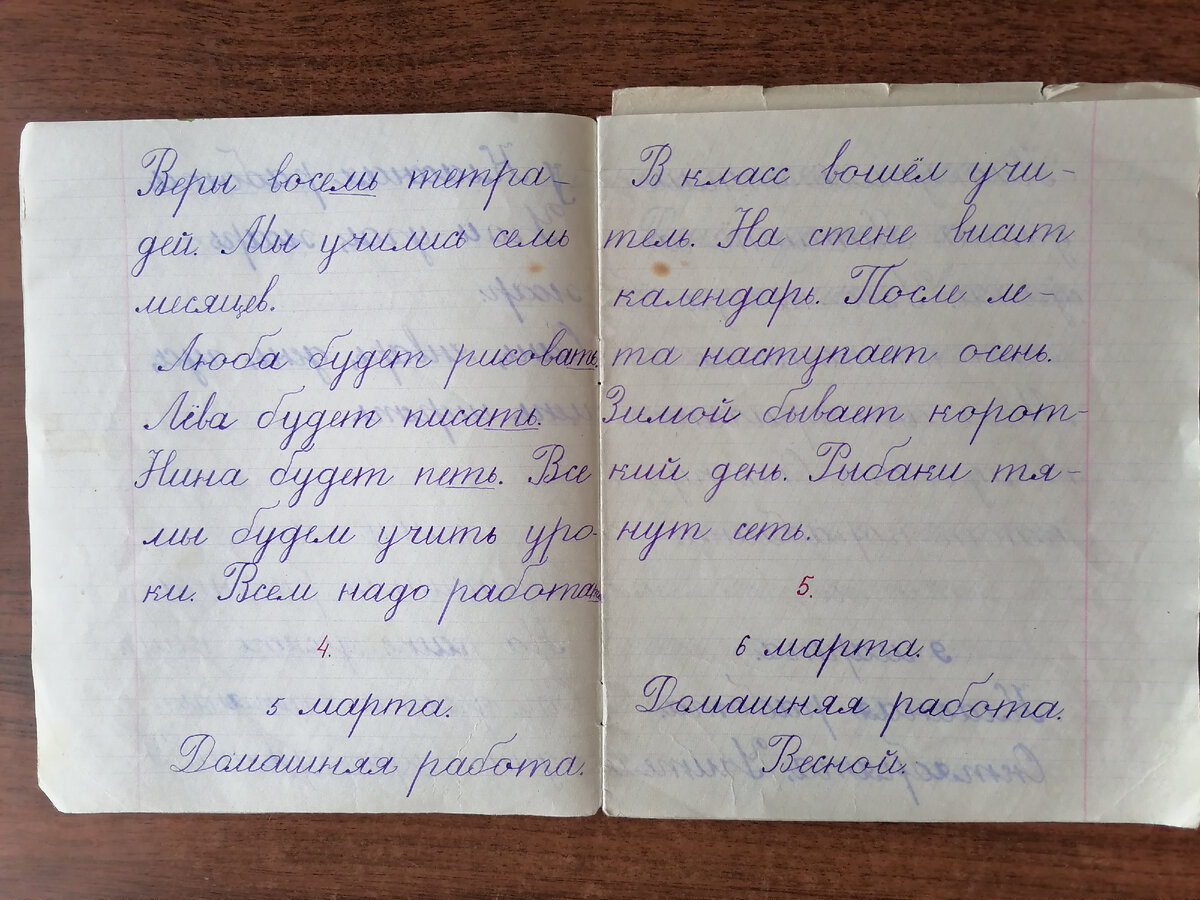 Веры восемь тетра-
дей. Мы учились семь
месяцев.
Люба будет рисовать.
Лёва будет писать.
Нина будет петь. Все
мы будем учить уро-
ки. Всем надо работать.
4.
5 марта.
Домашняя работа.
В класс вошёл учи-
тель. На стене висит
календарь. После ле-
та наступает осень.
Зимой бывает корот-
кий день. Рыбаки тя-
нут сеть.
5.
6 марта.
Домашняя работа.
Весной.